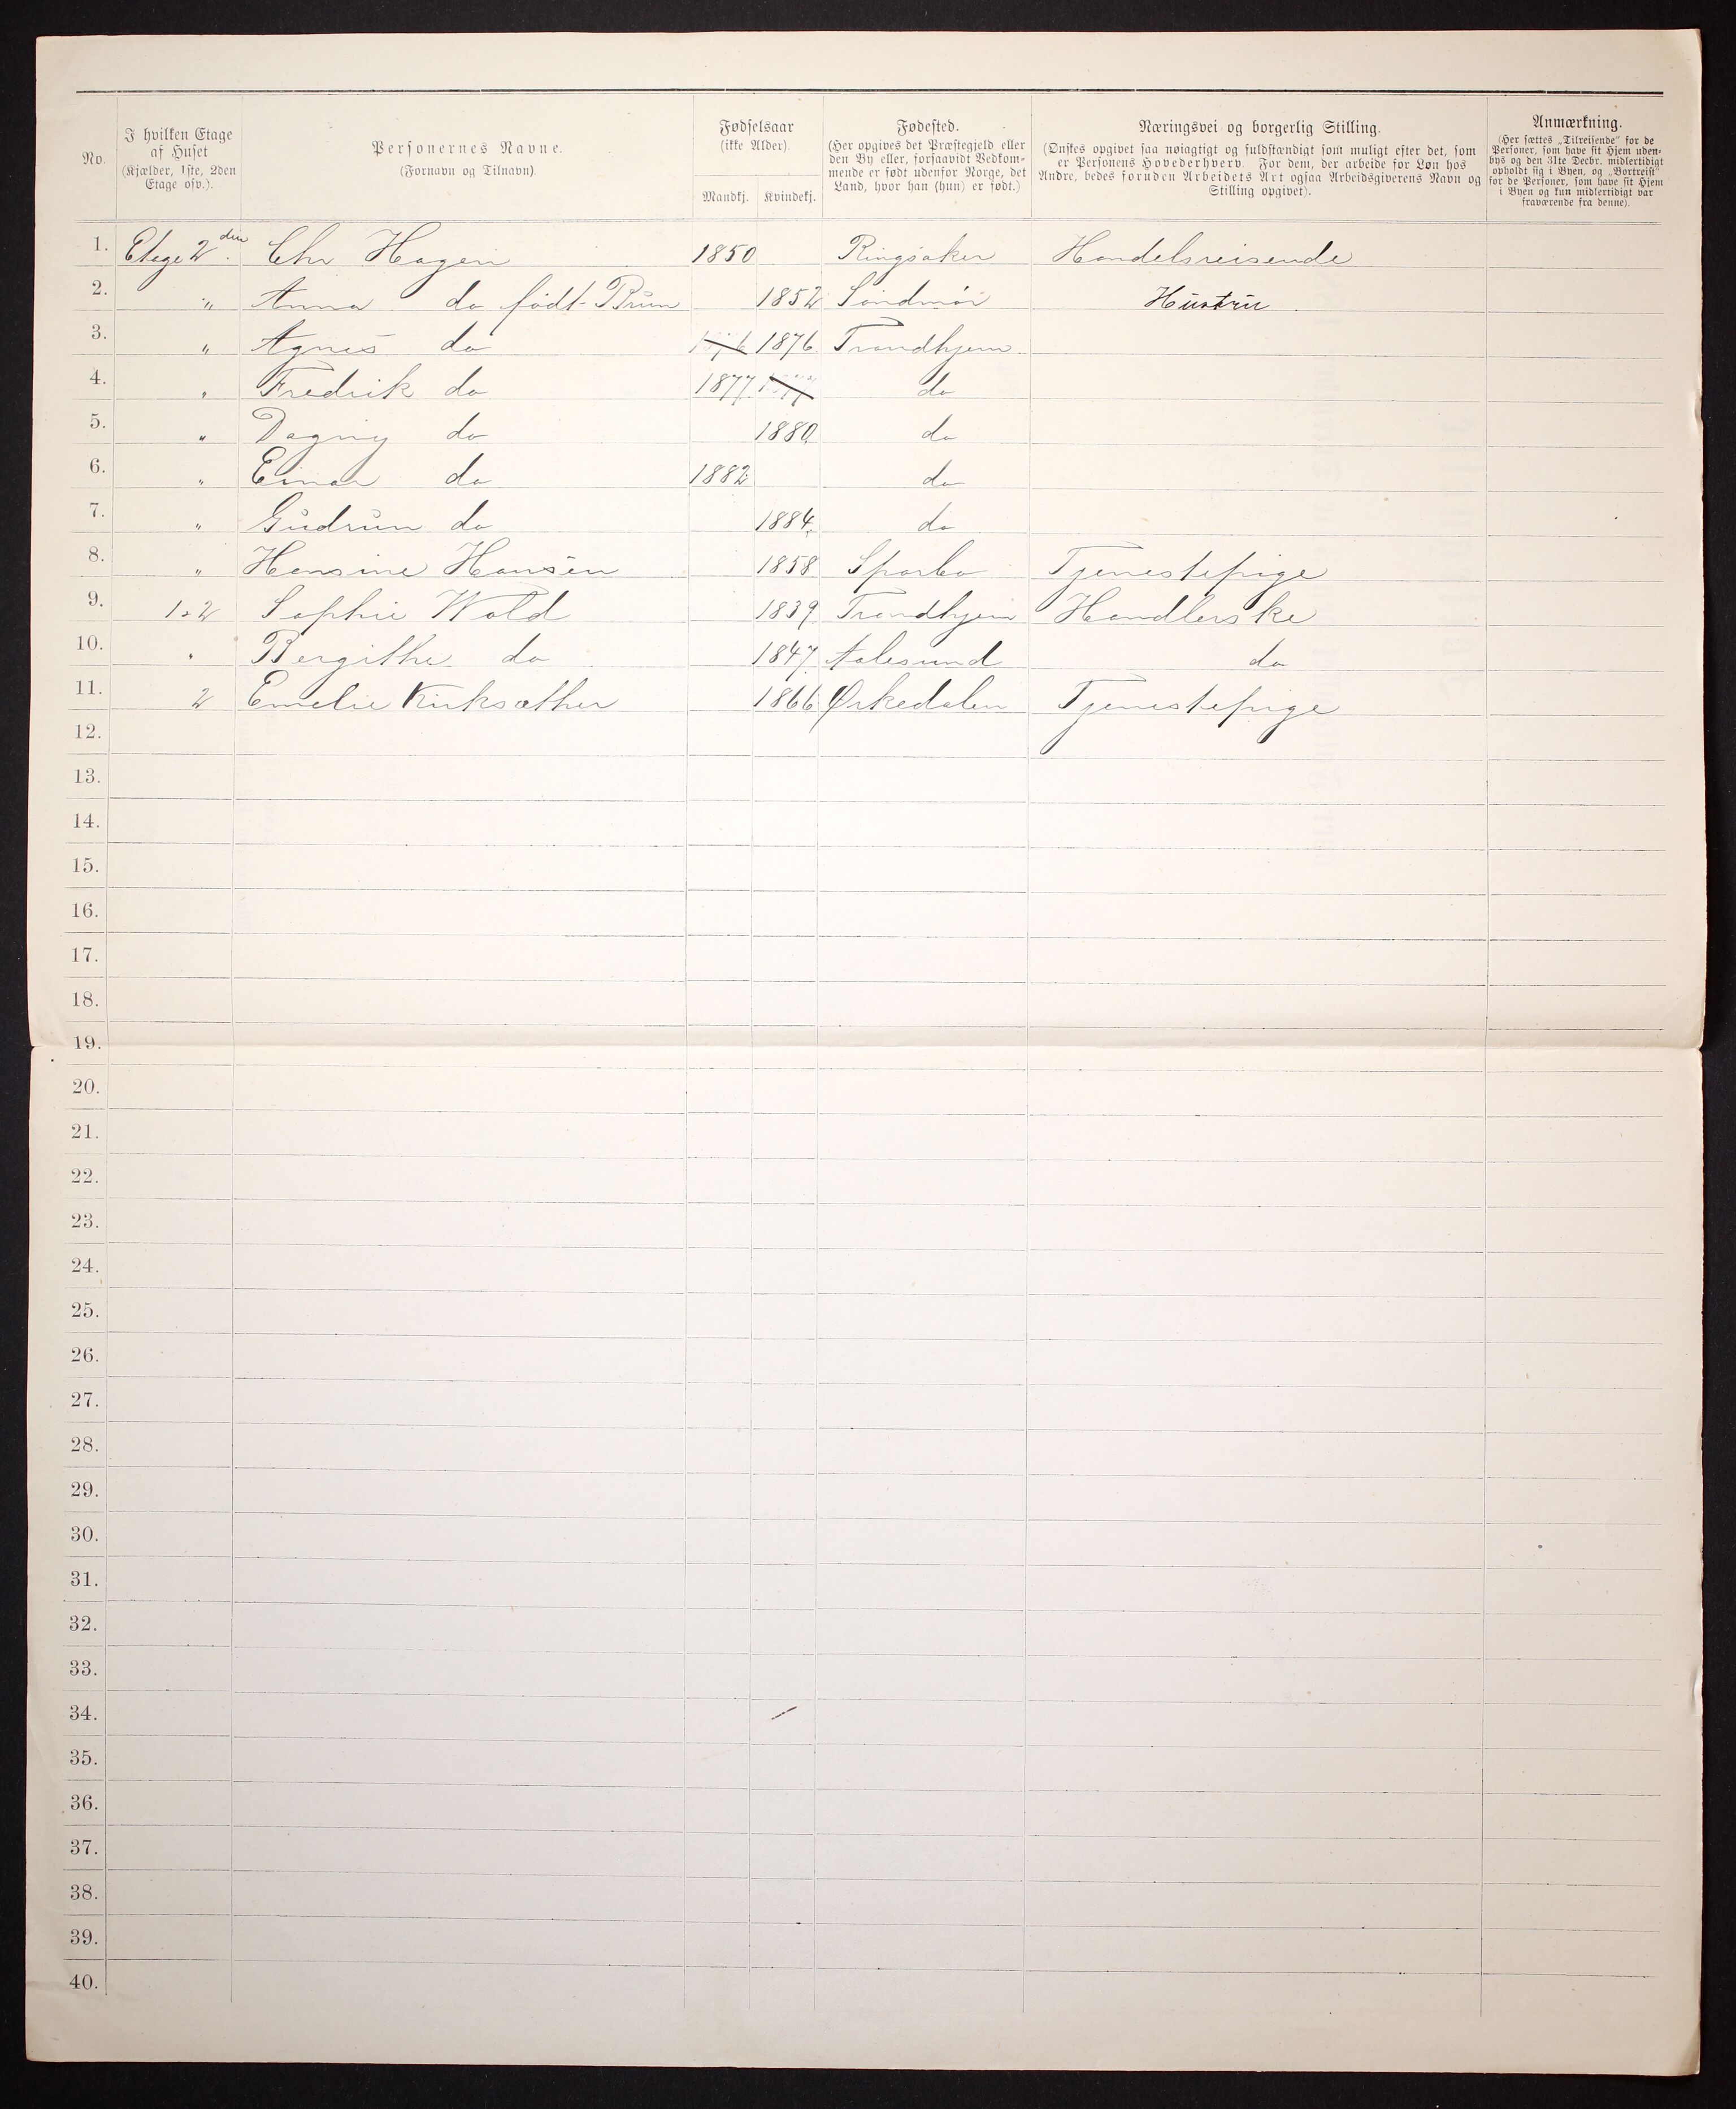 No.
I hvilken Etage
af Huset
(Kjælder, 1ste, 2den
Etage osv.).
Personernes Navne.
(Fornavn og Tilnavn)
Fødselsaar
(ikke Alder).
Mandkj. Kvindekj.
Fødested.
(Her opgives det Præstegjeld eller
den By eller, forsaavidt Vedkom-
mende er født udenfor Norge, det
Land, hvor han (hun) er født.)
Næringsvei og borgerlig Stilling.
(Ønskes opgivet saa nøiagtigt og fuldstændigt som muligt efter det, som
er Personens Hovederhverv. For dem, der arbeide for Løn hos
Andre, bedes foruden Arbeidets Art ogsaa Arbeidsgiverens Navn og
Stilling opgivet).
Anmærkning.
(Her sættes „Tilreisende" for de
Personer, som have sit Hjem uden-
bys og den 31te Decbr. midlertidigt
opholdt sig i Byen, og „Bortreist"
for de Personer, som have sit Hjem
i Byen og kun midlertidigt var
fraværende fra denne).
1. Etage 2den. Chr Hagen 1850 Ringsaker Handelsreisende
2. " Anna do født Brun 1852 Søndmør Hustru
3. " Agnes do 1876 1876 Trondhjem
4. " Fredrik do 1877 1877 do
5. " Dagny do 1880 do
6. " Einar do 1882 do
7. " Gudrun do 1884 do
8. " Hansine Hansen 1858 Sparbo Tjenestepige
9. 1&2 Sophie Wold 1839 Trondhjem Handlerske
10. " Bergithe do 1847 Aalesund do
11. 2 Emelie Kirksæther 1866 Ørkedalen Tjenestepige
12.
13.
14.
15.
16.
17.
18.
19.
20.
21.
22.
23.
24.
25.
26.
27.
28.
29.
30.
31.
32.
33.
34.
35.
36.
37.
38.
39.
40.